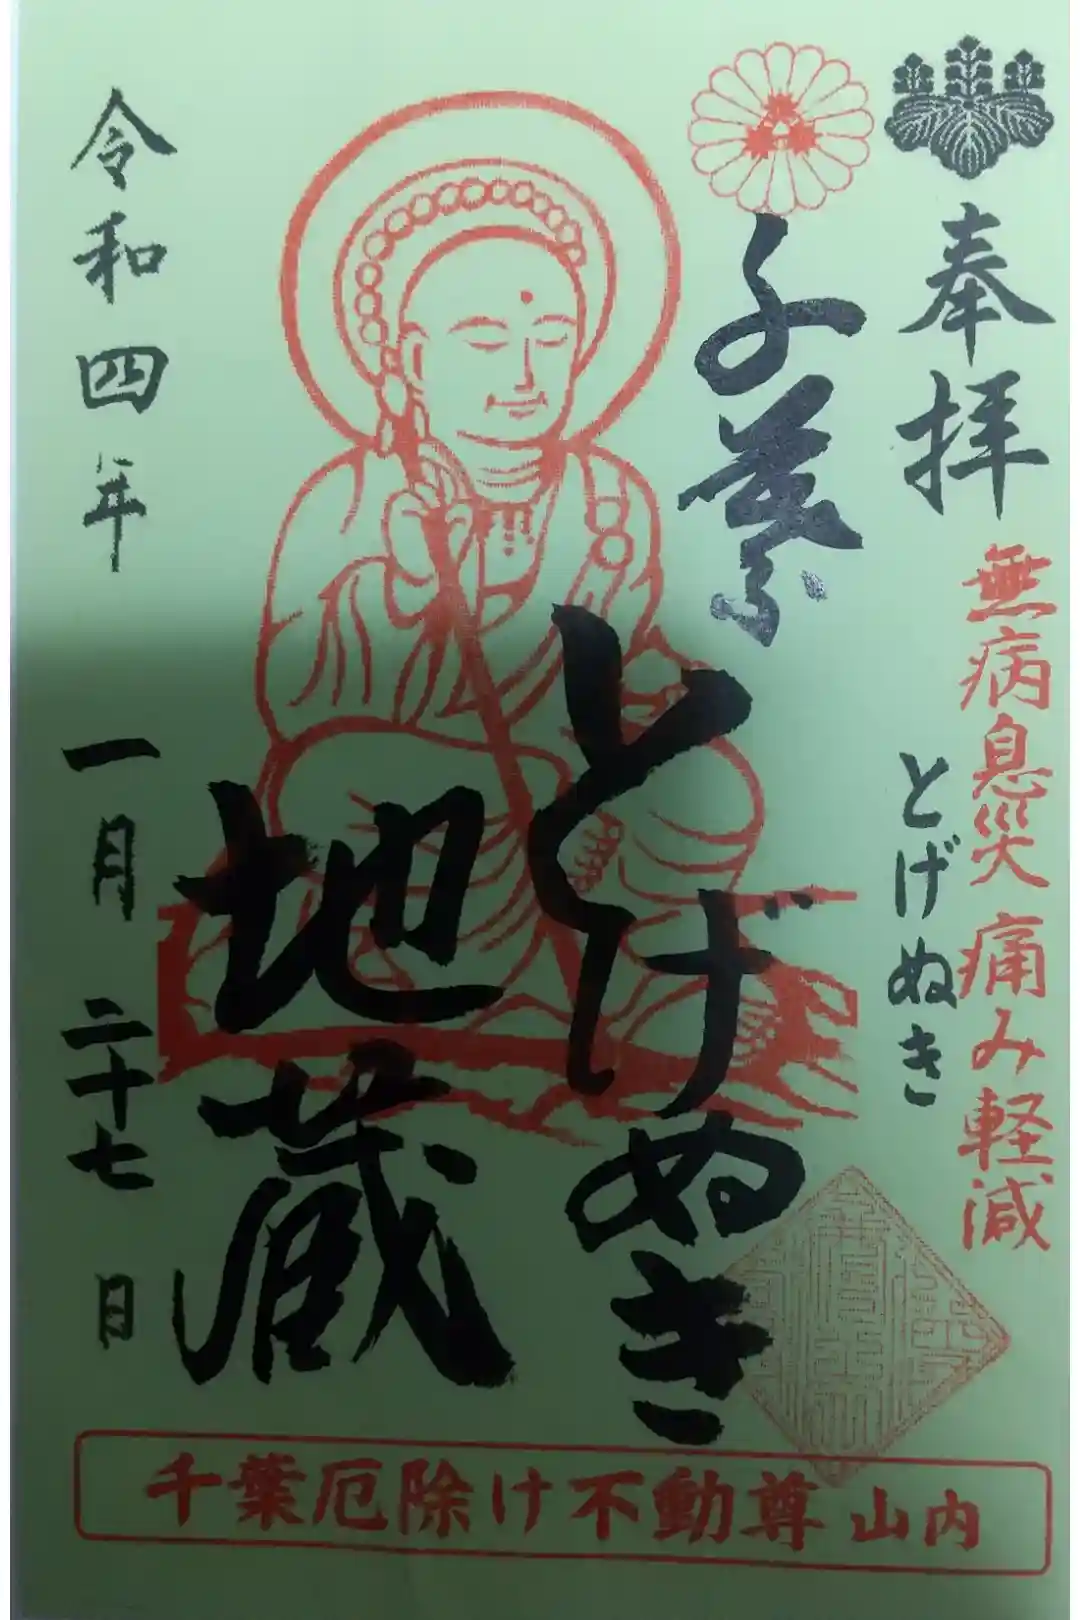 奉拝
無病息災 痛み軽減
とげぬき
千葉
とげぬき
地蔵
令和四年 一月 二十七日
千葉厄除け不動尊 山内